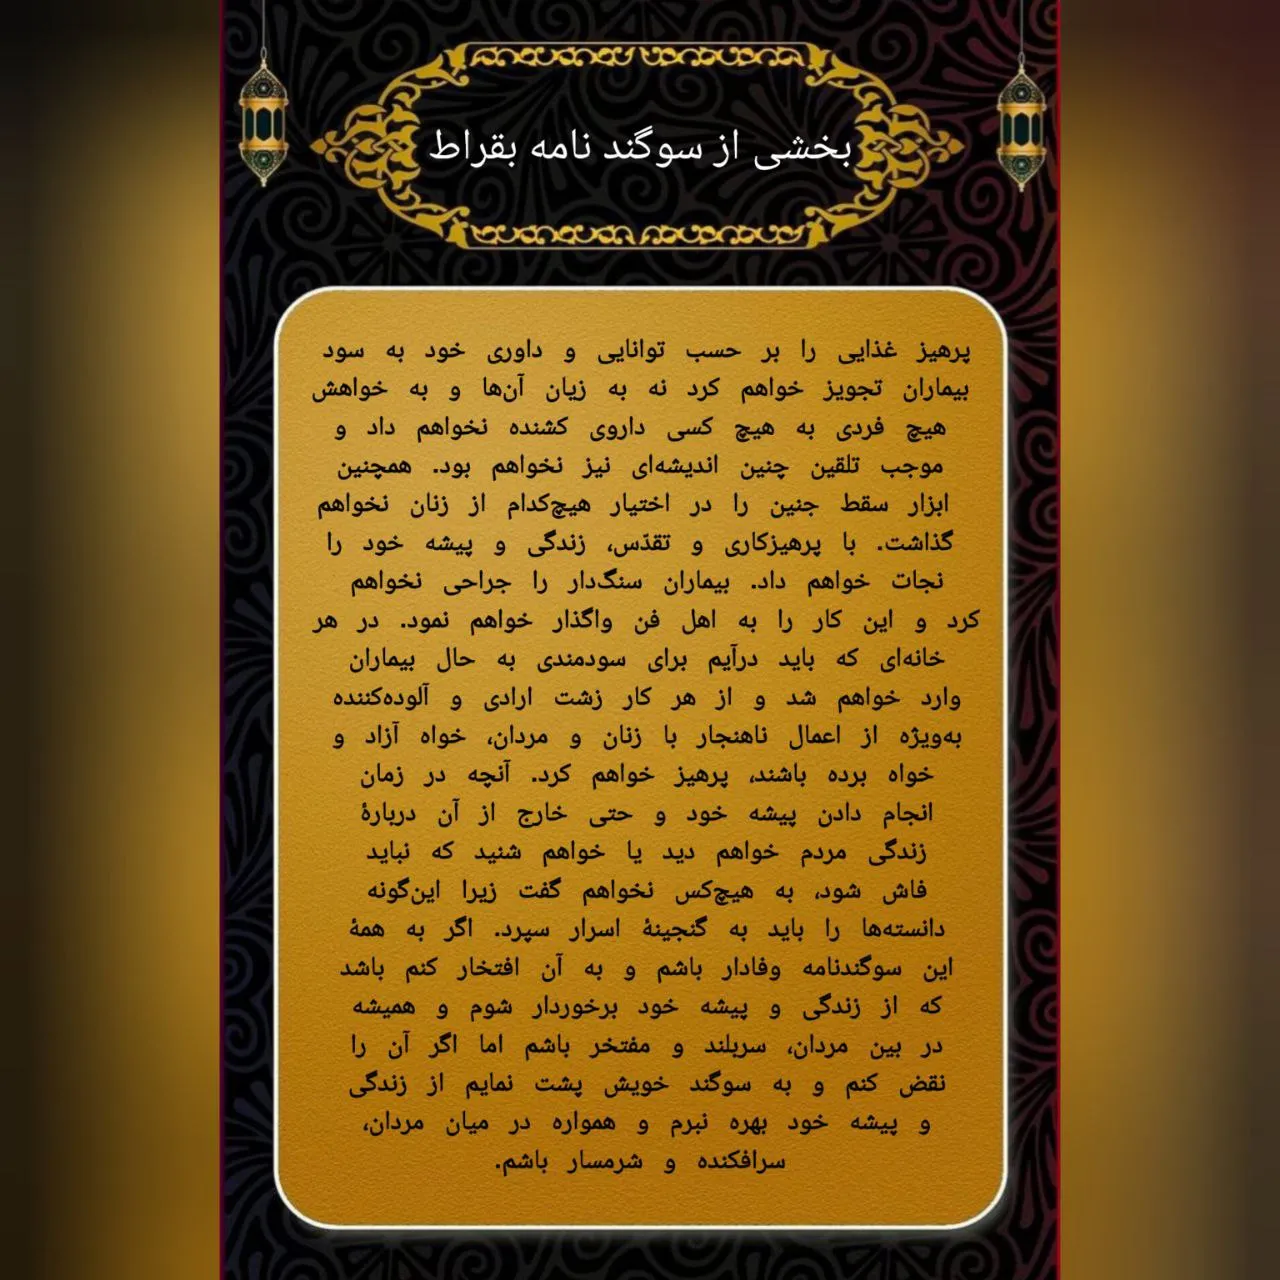 بخشی از سوگند نامه بقراط
پرهیز غذایی را بر حسب توانایی و داوری خود به سود
بیماران تجویز خواهم کرد نه به زیان آن‌ها و به خواهش
هیچ فردی به هیچ کسی داروی کشنده نخواهم داد و
موجب تلقین چنین اندیشه‌ای نیز نخواهم بود. همچنین
ابزار سقط جنین را در اختیار هیچ‌کدام از زنان نخواهم
گذاشت. با پرهیزکاری و تقدّس، زندگی و پیشه خود را
نجات خواهم داد. بیماران سنگ‌دار را جراحی نخواهم
کرد و این کار را به اهل فن واگذار خواهم نمود. در هر
خانه‌ای که باید درآیم برای سودمندی به حال بیماران
وارد خواهم شد و از هر کار زشت ارادی و آلوده‌کننده
به‌ویژه از اعمال ناهنجار با زنان و مردان، خواه آزاد و
خواه برده باشند، پرهیز خواهم کرد. آنچه در زمان
انجام دادن پیشه خود و حتی خارج از آن دربارهٔ
زندگی مردم خواهم دید یا خواهم شنید که نباید
فاش شود، به هیچ‌کس نخواهم گفت زیرا این‌گونه
دانسته‌ها را باید به گنجینهٔ اسرار سپرد. اگر به همهٔ
این سوگندنامه وفادار باشم و به آن افتخار کنم باشد
که از زندگی و پیشه خود برخوردار شوم و همیشه
در بین مردان، سربلند و مفتخر باشم اما اگر آن را
نقض کنم و به سوگند خویش پشت نمایم از زندگی
و پیشه خود بهره نبرم و همواره در میان مردان،
سرافکنده و شرمسار باشم.